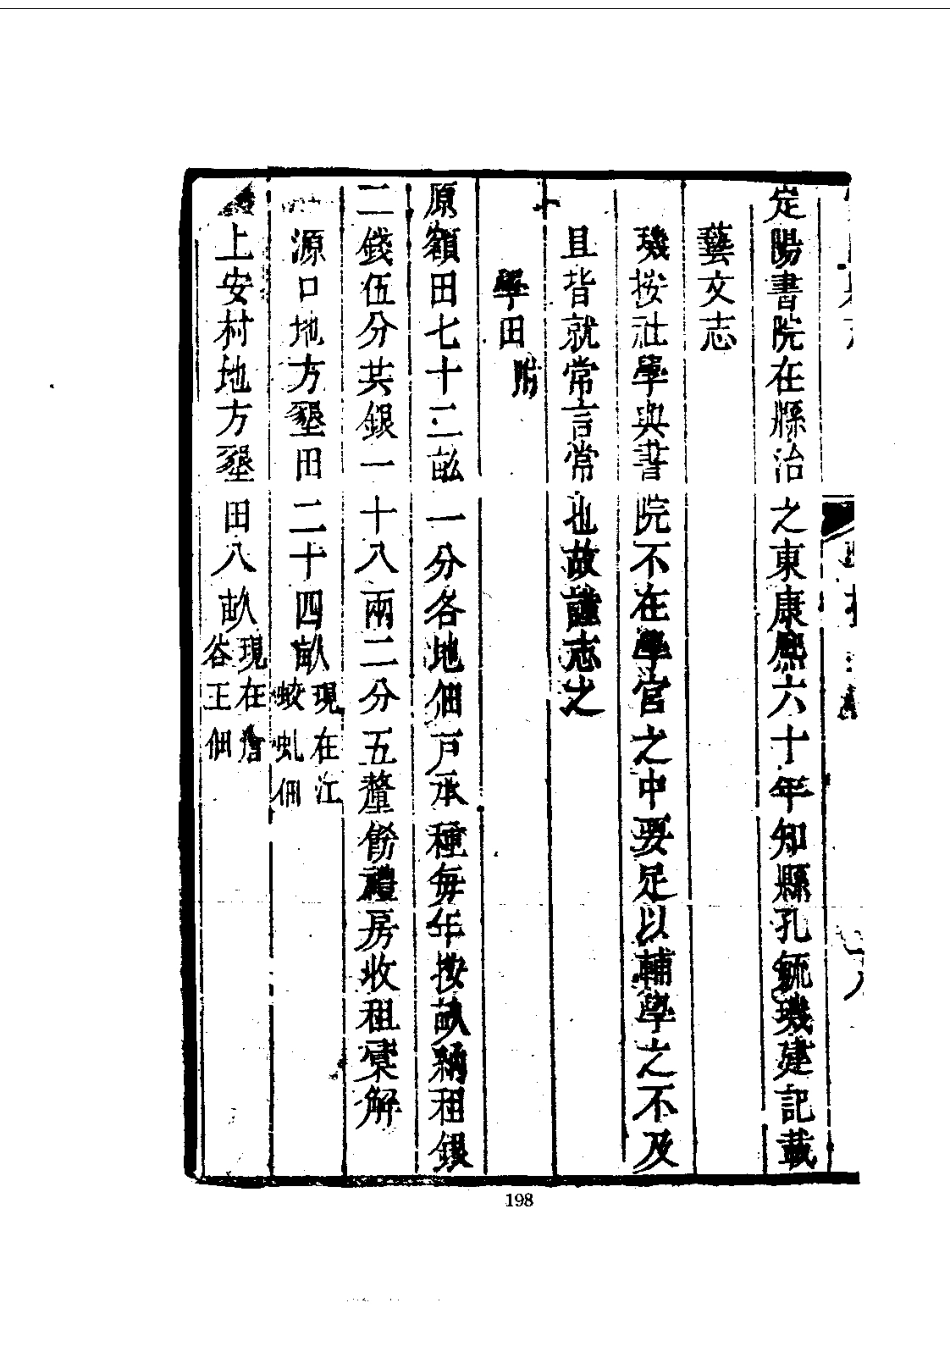 定陽書院在縣治之東康熙六十年知縣孔毓璣建記載
藝文志
璣按社學與書院不在學宮之中要足以輔學之不及
且皆就常言常也故謹志之
學田附
原額田七十二畝一分各地佃戸承種每年按畝納租銀
二錢伍分共銀一十八兩二分五釐餘禮房收租彚解
源口地方墾田二十四畝現在江蛟虬佃
上安村地方墾田八畝現在詹谷王佃
198